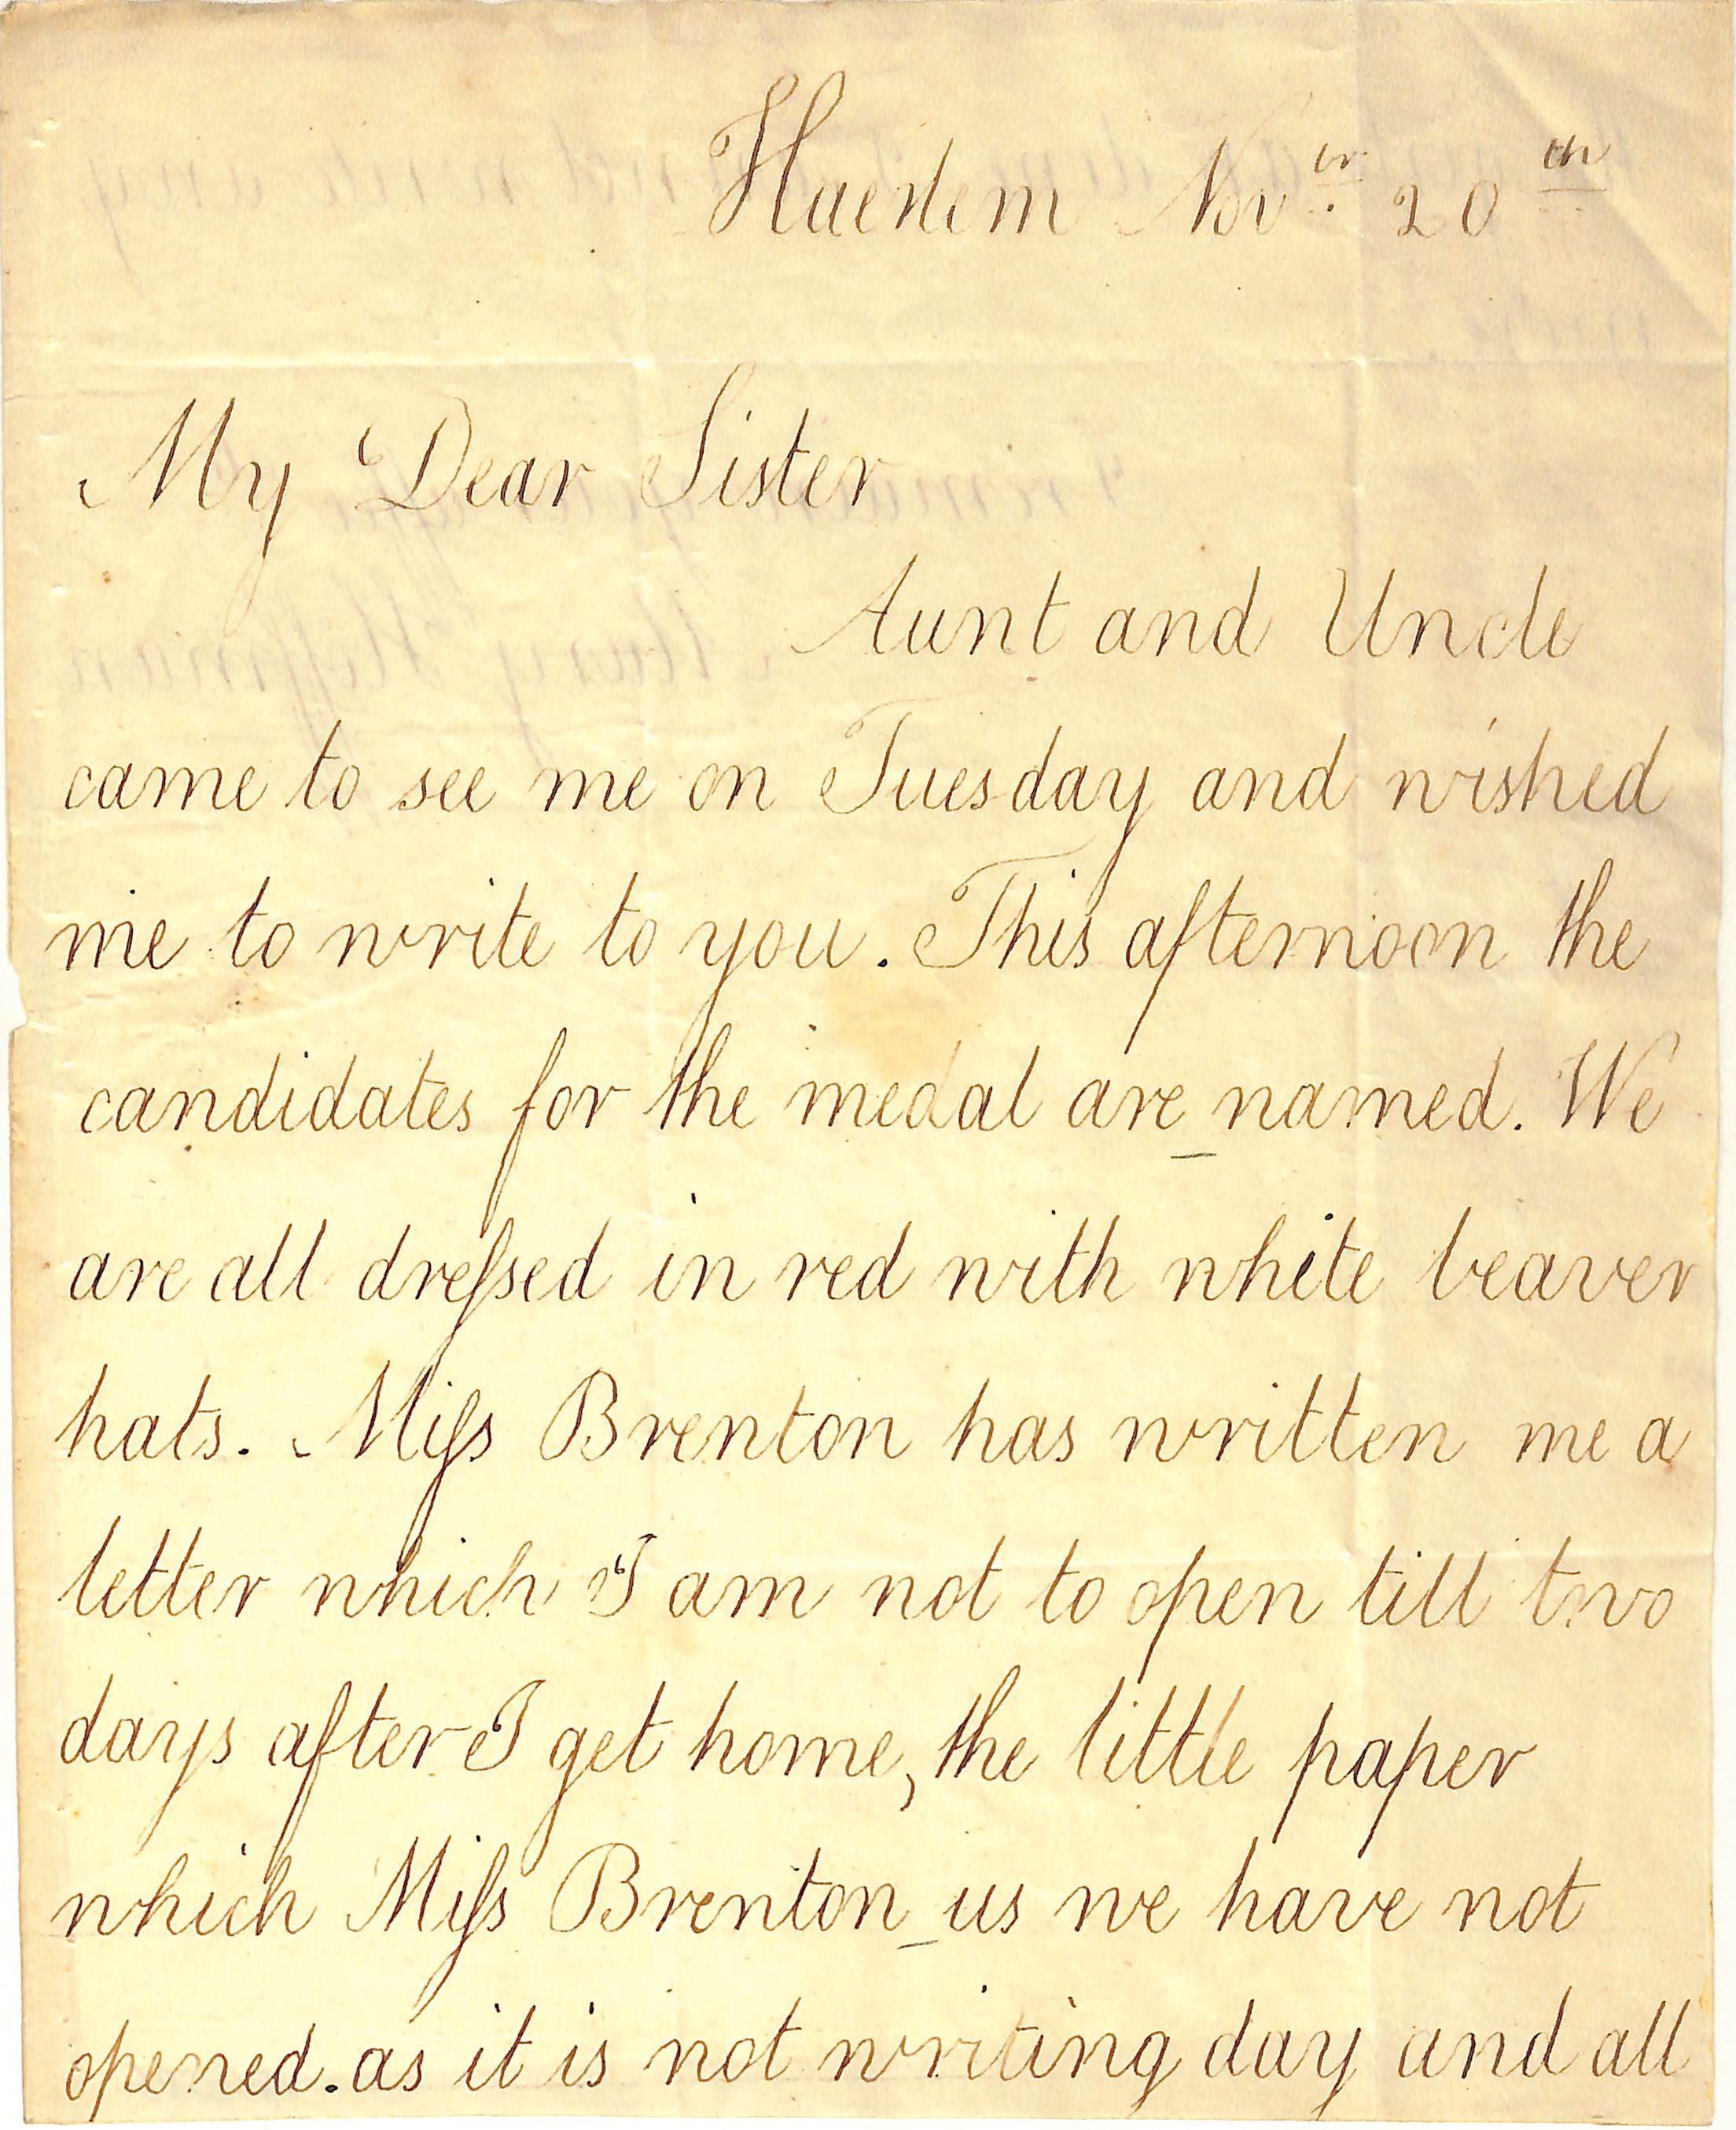 Haerlem Novbr. 20th
My Dear Sister
Aunt and Uncle
came to see me on Tuesday and wished
me to write to you. This afternoon the
candidates for the medal are named. We
are all dreſsed in red with white beaver
hats. Miſs Brenton has written me a
letter which I am not to open till two
days after I get home, the little paper
which Miſs Brenton us we have not
opened. as it is not writing day and all